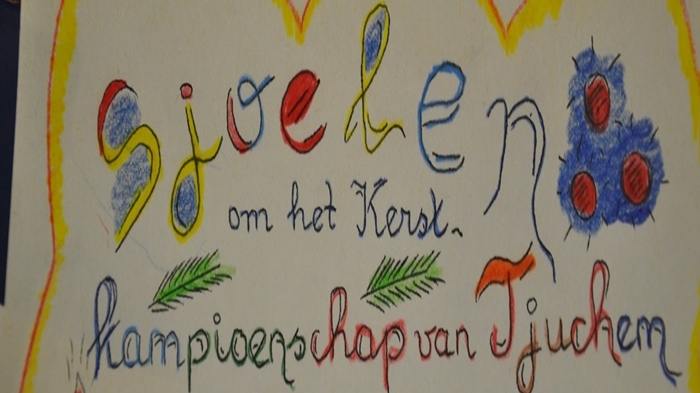 Sjoelen
om het Kerst-
kampioenschap van Tjuchem